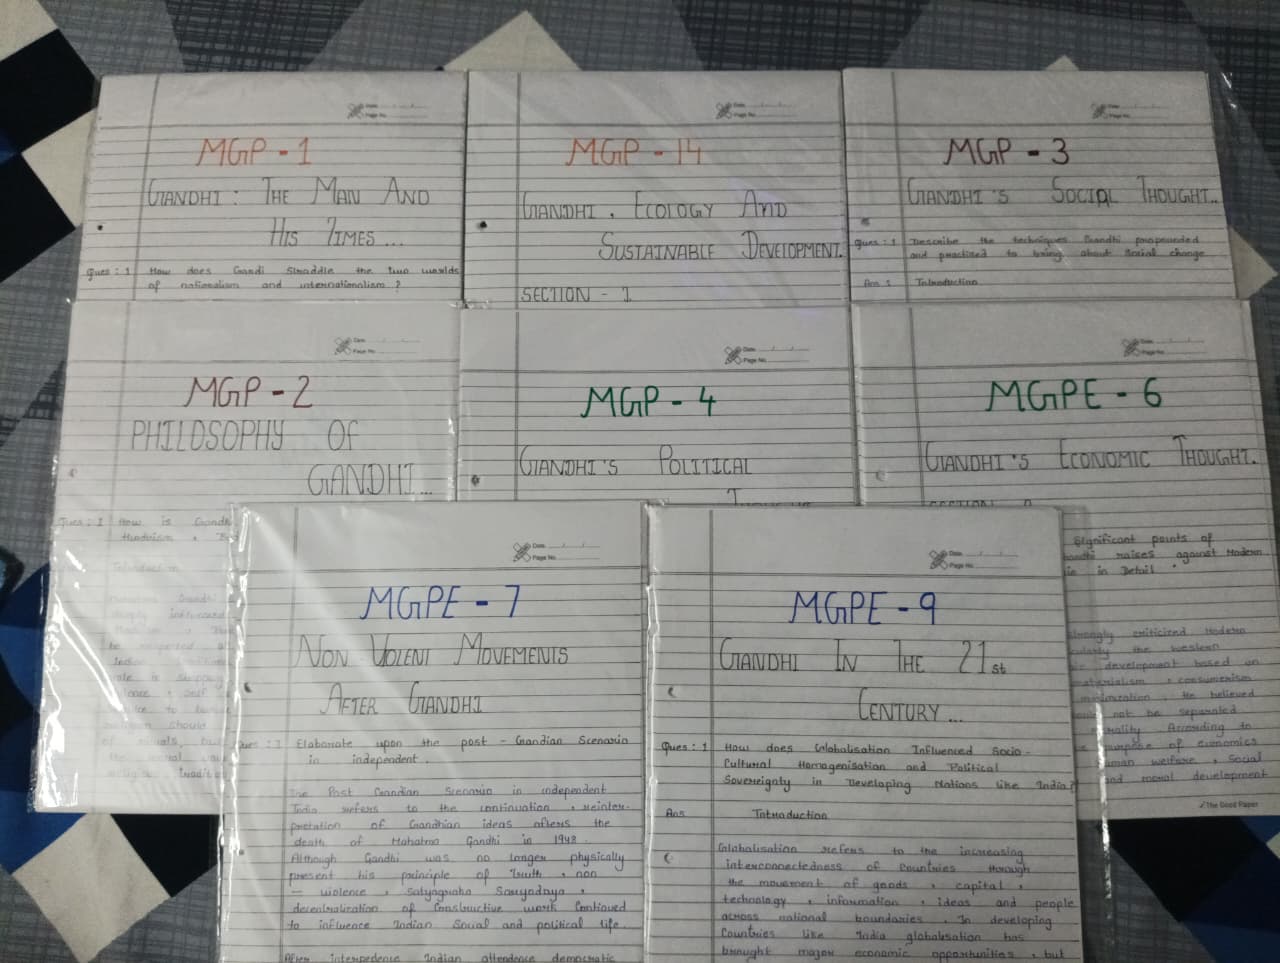 Date
Page No.
MGP - 1
GANDHI : THE MAN AND
HIS TIMES ...
Ques : 1 How does Gandi Straddle the two worlds
of nationalism and internationalism ?
Date
Page No.
MGP - 14
GANDHI , ECOLOGY AND
SUSTAINABLE DEVELOPMENT.
SECTION - 1
Date
Page No.
MGP - 3
GANDHI'S SOCIAL THOUGHT..
Ques : 1 Describe the techniques Gandhi propounded
and practised to bring about Social change
Ans : Introduction
Date
Page No.
MGP - 2
PHILOSOPHY OF
GANDHI...
Ques : 1 How is Gandh
Hinduism ,
Introduction
Date
Page No.
MGP - 4
GANDHI'S POLITICAL
Date
Page No.
MGPE - 6
GANDHI'S ECONOMIC THOUGHT.
Significant points of
raises against Modern
in Detail .
criticized Modern
the western
development based on
, consumerism
. He believed
not be separated
According to
of economics
welfare , Social
and moral development
The Good Paper
Date
Page No.
MGPE - 7
NON VOLENT MOVEMENTS
AFTER GANDHI
Ques : 1 Elaborate upon the post - Gandian Scenario
in independent .
The Post Gandian Scenario in independent
India refers to the continuation , reinter-
pretation of Gandhian ideas afters the
death of Mahatma Gandhi in 1948
Although Gandhi was no longer physically
present his principle of Truth , non
- violence , Satyagraha Sarvodaya ,
decentralization of Constructive work Continued
to influence Indian Social and political life.
After Indian democratic
Date
Page No.
MGPE - 9
GANDHI IN THE 21st
CENTURY ...
Ques : 1 How does Globalisation Influenced Socio -
Cultural Homogenisation and Political
Sovereignty in Developing Nations like India?
Ans Introduction
Globalisation refers to the increasing
interconnectedness of Countries through
the movement of goods , capital ,
technology , information , ideas and people
across national boundaries . In developing
Countries like India globalisation has
brought major economic opportunities , but